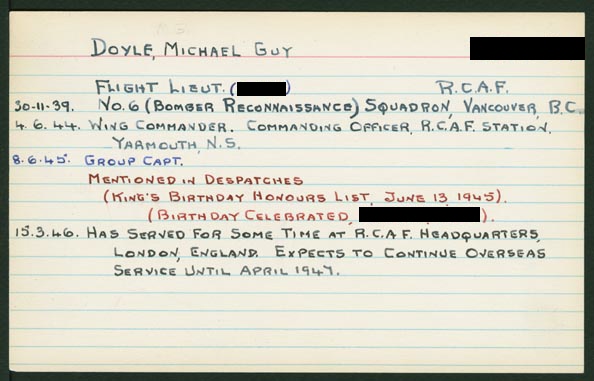 DOYLE, MICHAEL GUY
FLIGHT LIEUT. ( ) R.C.A.F.
30-11-39. NO. 6 (BOMBER RECONNAISSANCE) SQUADRON, VANCOUVER, B.C.
4.6.44. WING COMMANDER. COMMANDING OFFICER, R.C.A.F. STATION,
YARMOUTH, N.S.
8.6.45. GROUP CAPT.
MENTIONED IN DESPATCHES
(KING'S BIRTHDAY HONOURS LIST, JUNE 13, 1945).
(BIRTHDAY CELEBRATED, ).
15.3.46. HAS SERVED FOR SOME TIME AT R.C.A.F. HEADQUARTERS,
LONDON, ENGLAND. EXPECTS TO CONTINUE OVERSEAS
SERVICE UNTIL APRIL 1947.